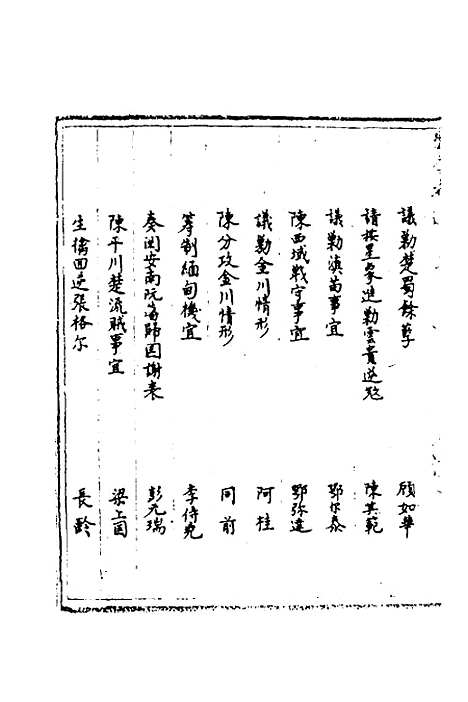 議勦楚蜀餘孽　顧如華
請按星象進勦雲貴逆　陳其範
議勦滇苗事宜　鄂尔泰
陳西域戰守事宜　鄂弥達
議勦金川情形　阿桂
陳分攻金川情形　同前
籌制緬甸機宜　李侍堯
奏聞安南阮　歸因謝表　彭元瑞
陳平川楚流賊事宜　梁上國
生擒回逆張格尔　長齡